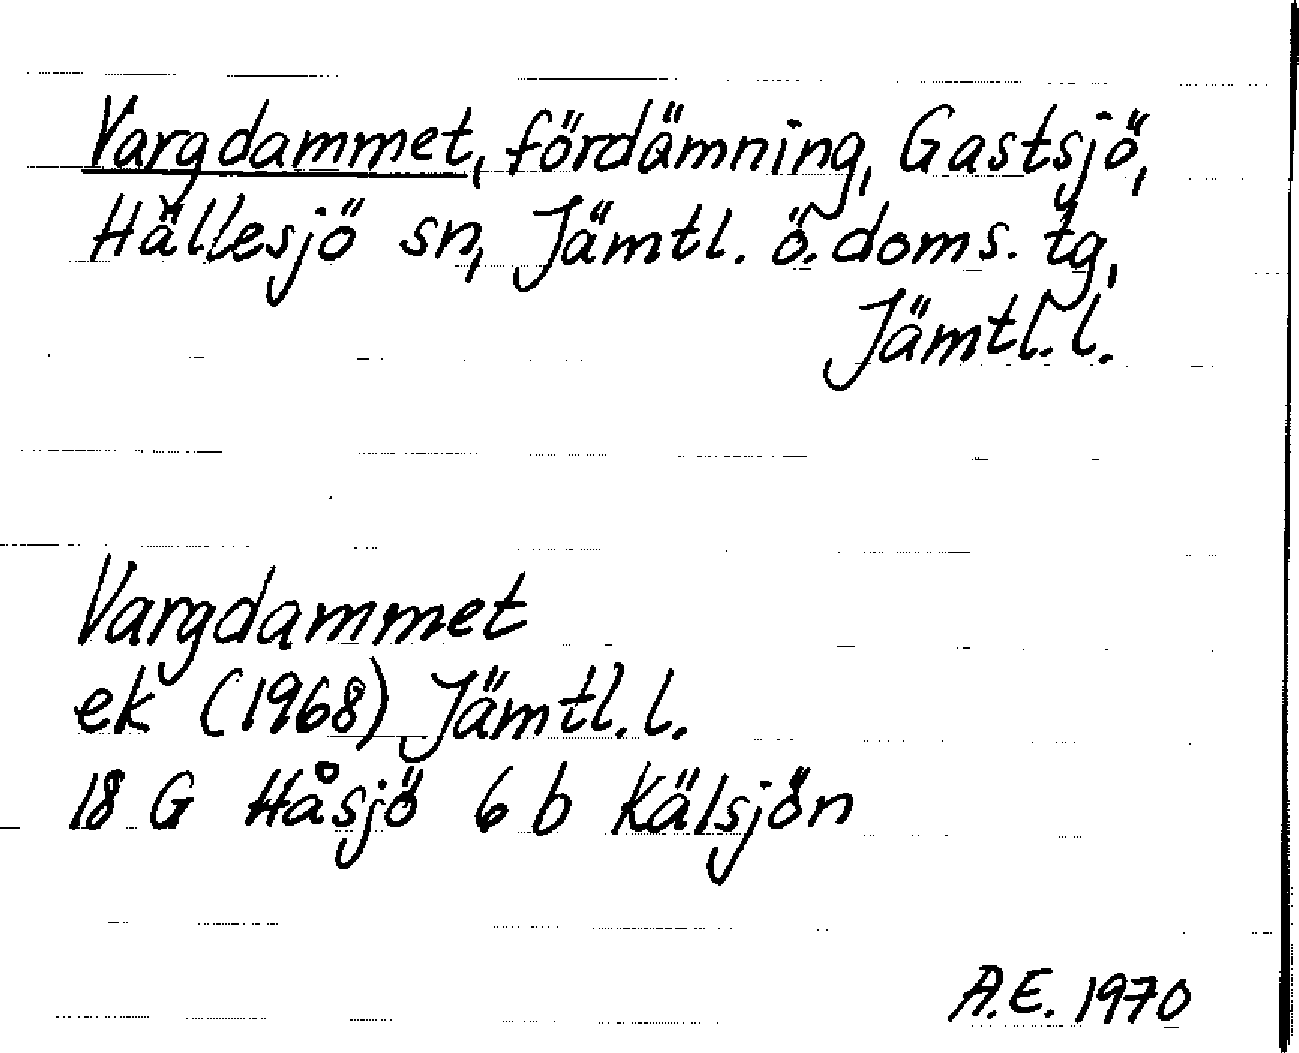 Vargdammet, fördämning, Gastsjö,
Hällesjö sn, Jämtl. ö. doms. tg,
Jämtl. l.
Vargdammet
ek (1968) Jämtl. l.
18 G Håsjö 6 b Kälsjön
A.E. 1970